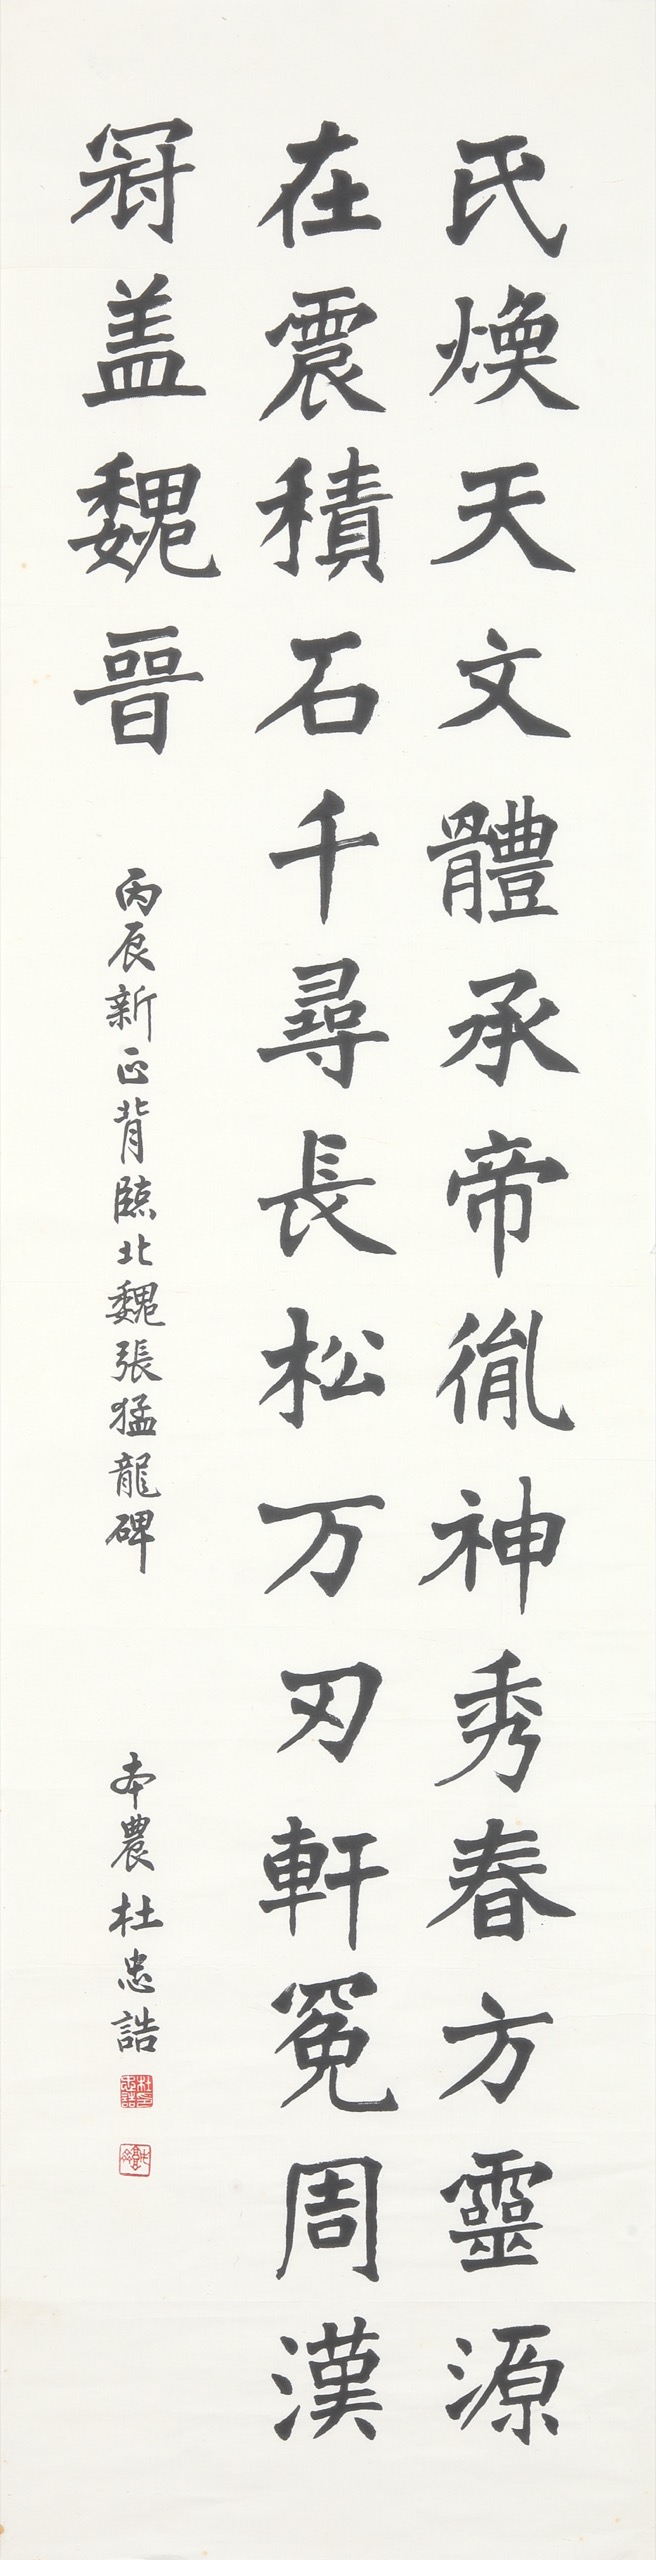 氏煥天文體承帝胤神秀春方靈源
在震積石千尋長松万刃軒冕周漢
冠盖魏晉
丙辰新正背臨北魏張猛龍碑
本農杜忠誥